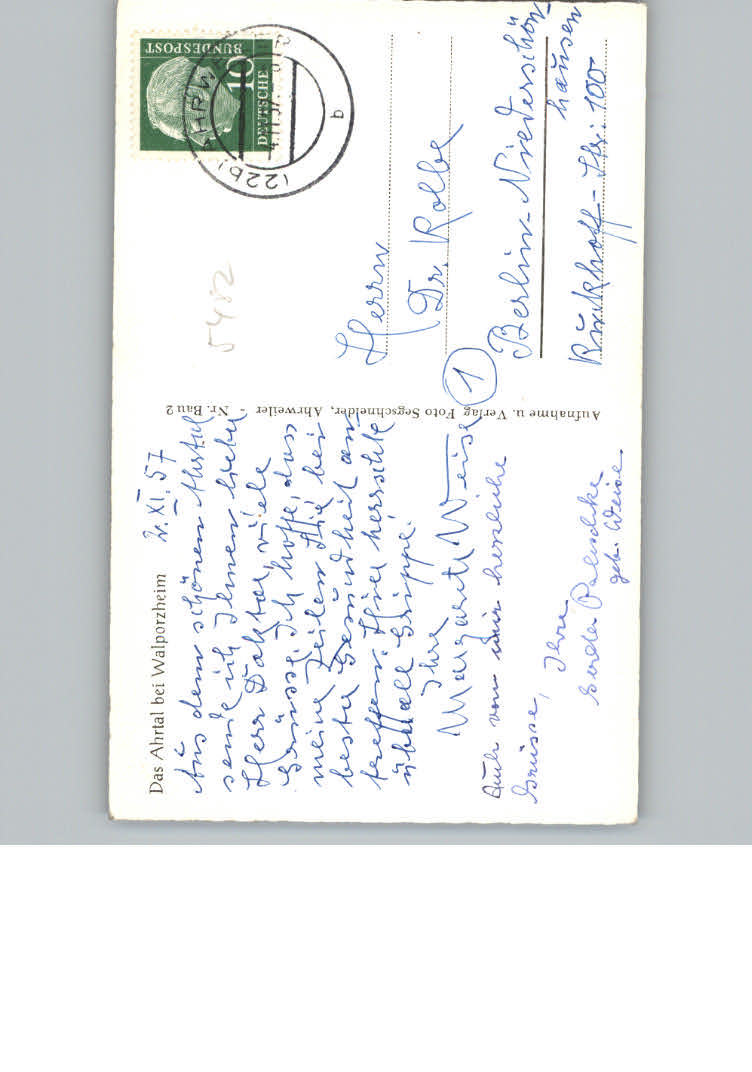 Das Ahrtal bei Walporzheim
2. XI. 57
Aus dem schönen Ahrtal
sende ich Ihnen lieber
Herr Doktor, viele
Grüsse. Ich hoffe, dass
meine Zeilen Sie bei
bester Gesundheit an-
treffen. Hier herrschte
überall Grippe.
Ihre
Margarete Weise
Auch von mir herzliche
Grüsse, Ihre
Gerda
geb. Weise.
Aufnahme u. Verlag Foto Segschneider, Ahrweiler - Nr. Bau 2
5482
DEUTSCHE
BUNDESPOST
10
(22b) AHRWEILER
4.11.57
b
Herrn
Dr. Kolbe
1
Berlin-Niederschön-
hausen
Str. 100